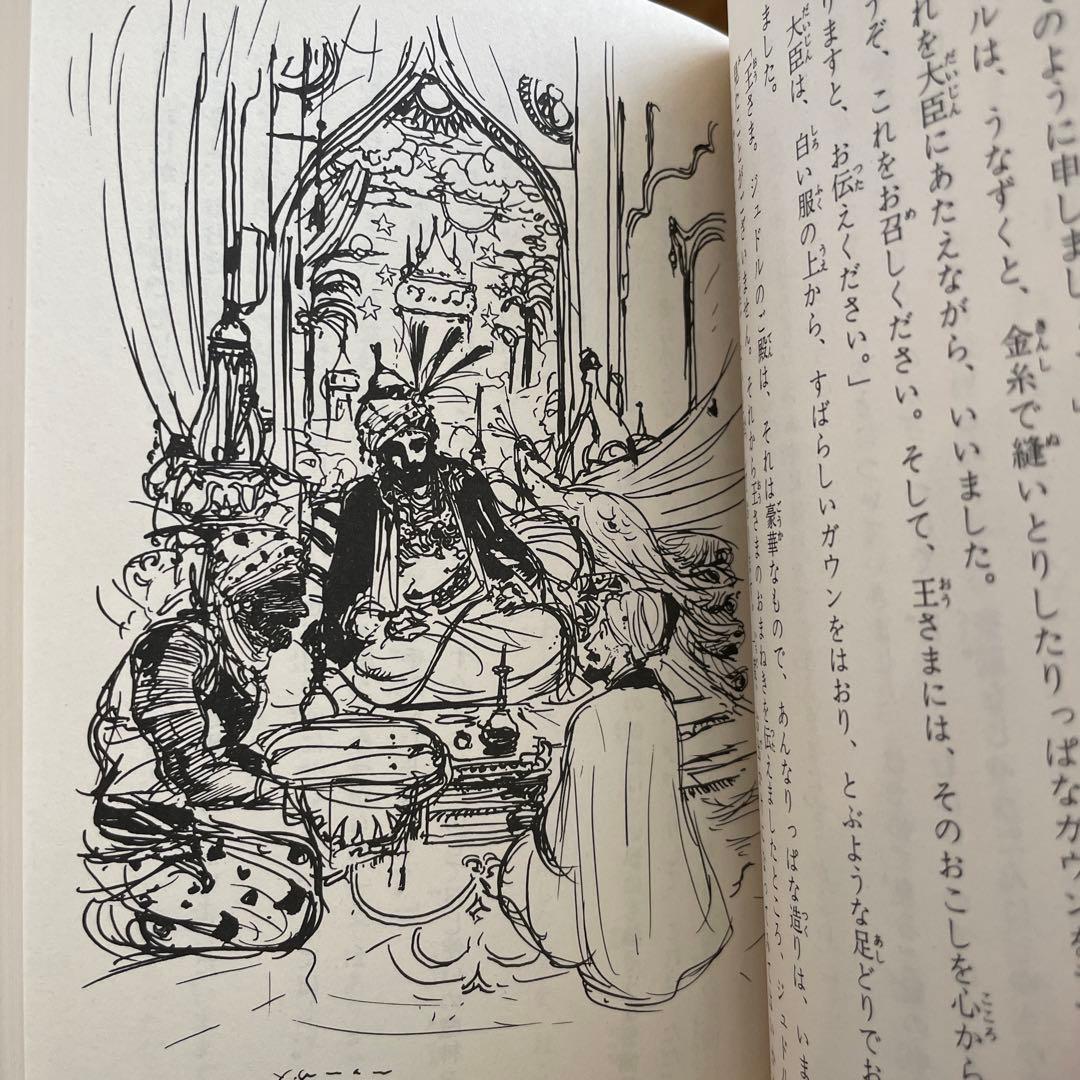 のように申しまし
ルは、うなずくと、金糸で縫いとりしたりっぱなガウンを
れを大臣にあたえながら、いいました。
うぞ、これをお召しください。そして、王さまには、そのおこしを心から
りますと、お伝えください。」
大臣は、白い服の上から、すばらしいガウンをはおり、とぶような足どりでお
ました。
「王さま。ジュドルのご殿は、それは豪華なもので、あんなりっぱな造りは、いま
ことがございません。それから王さまのおまねきを伝えましたところ、ジュドル